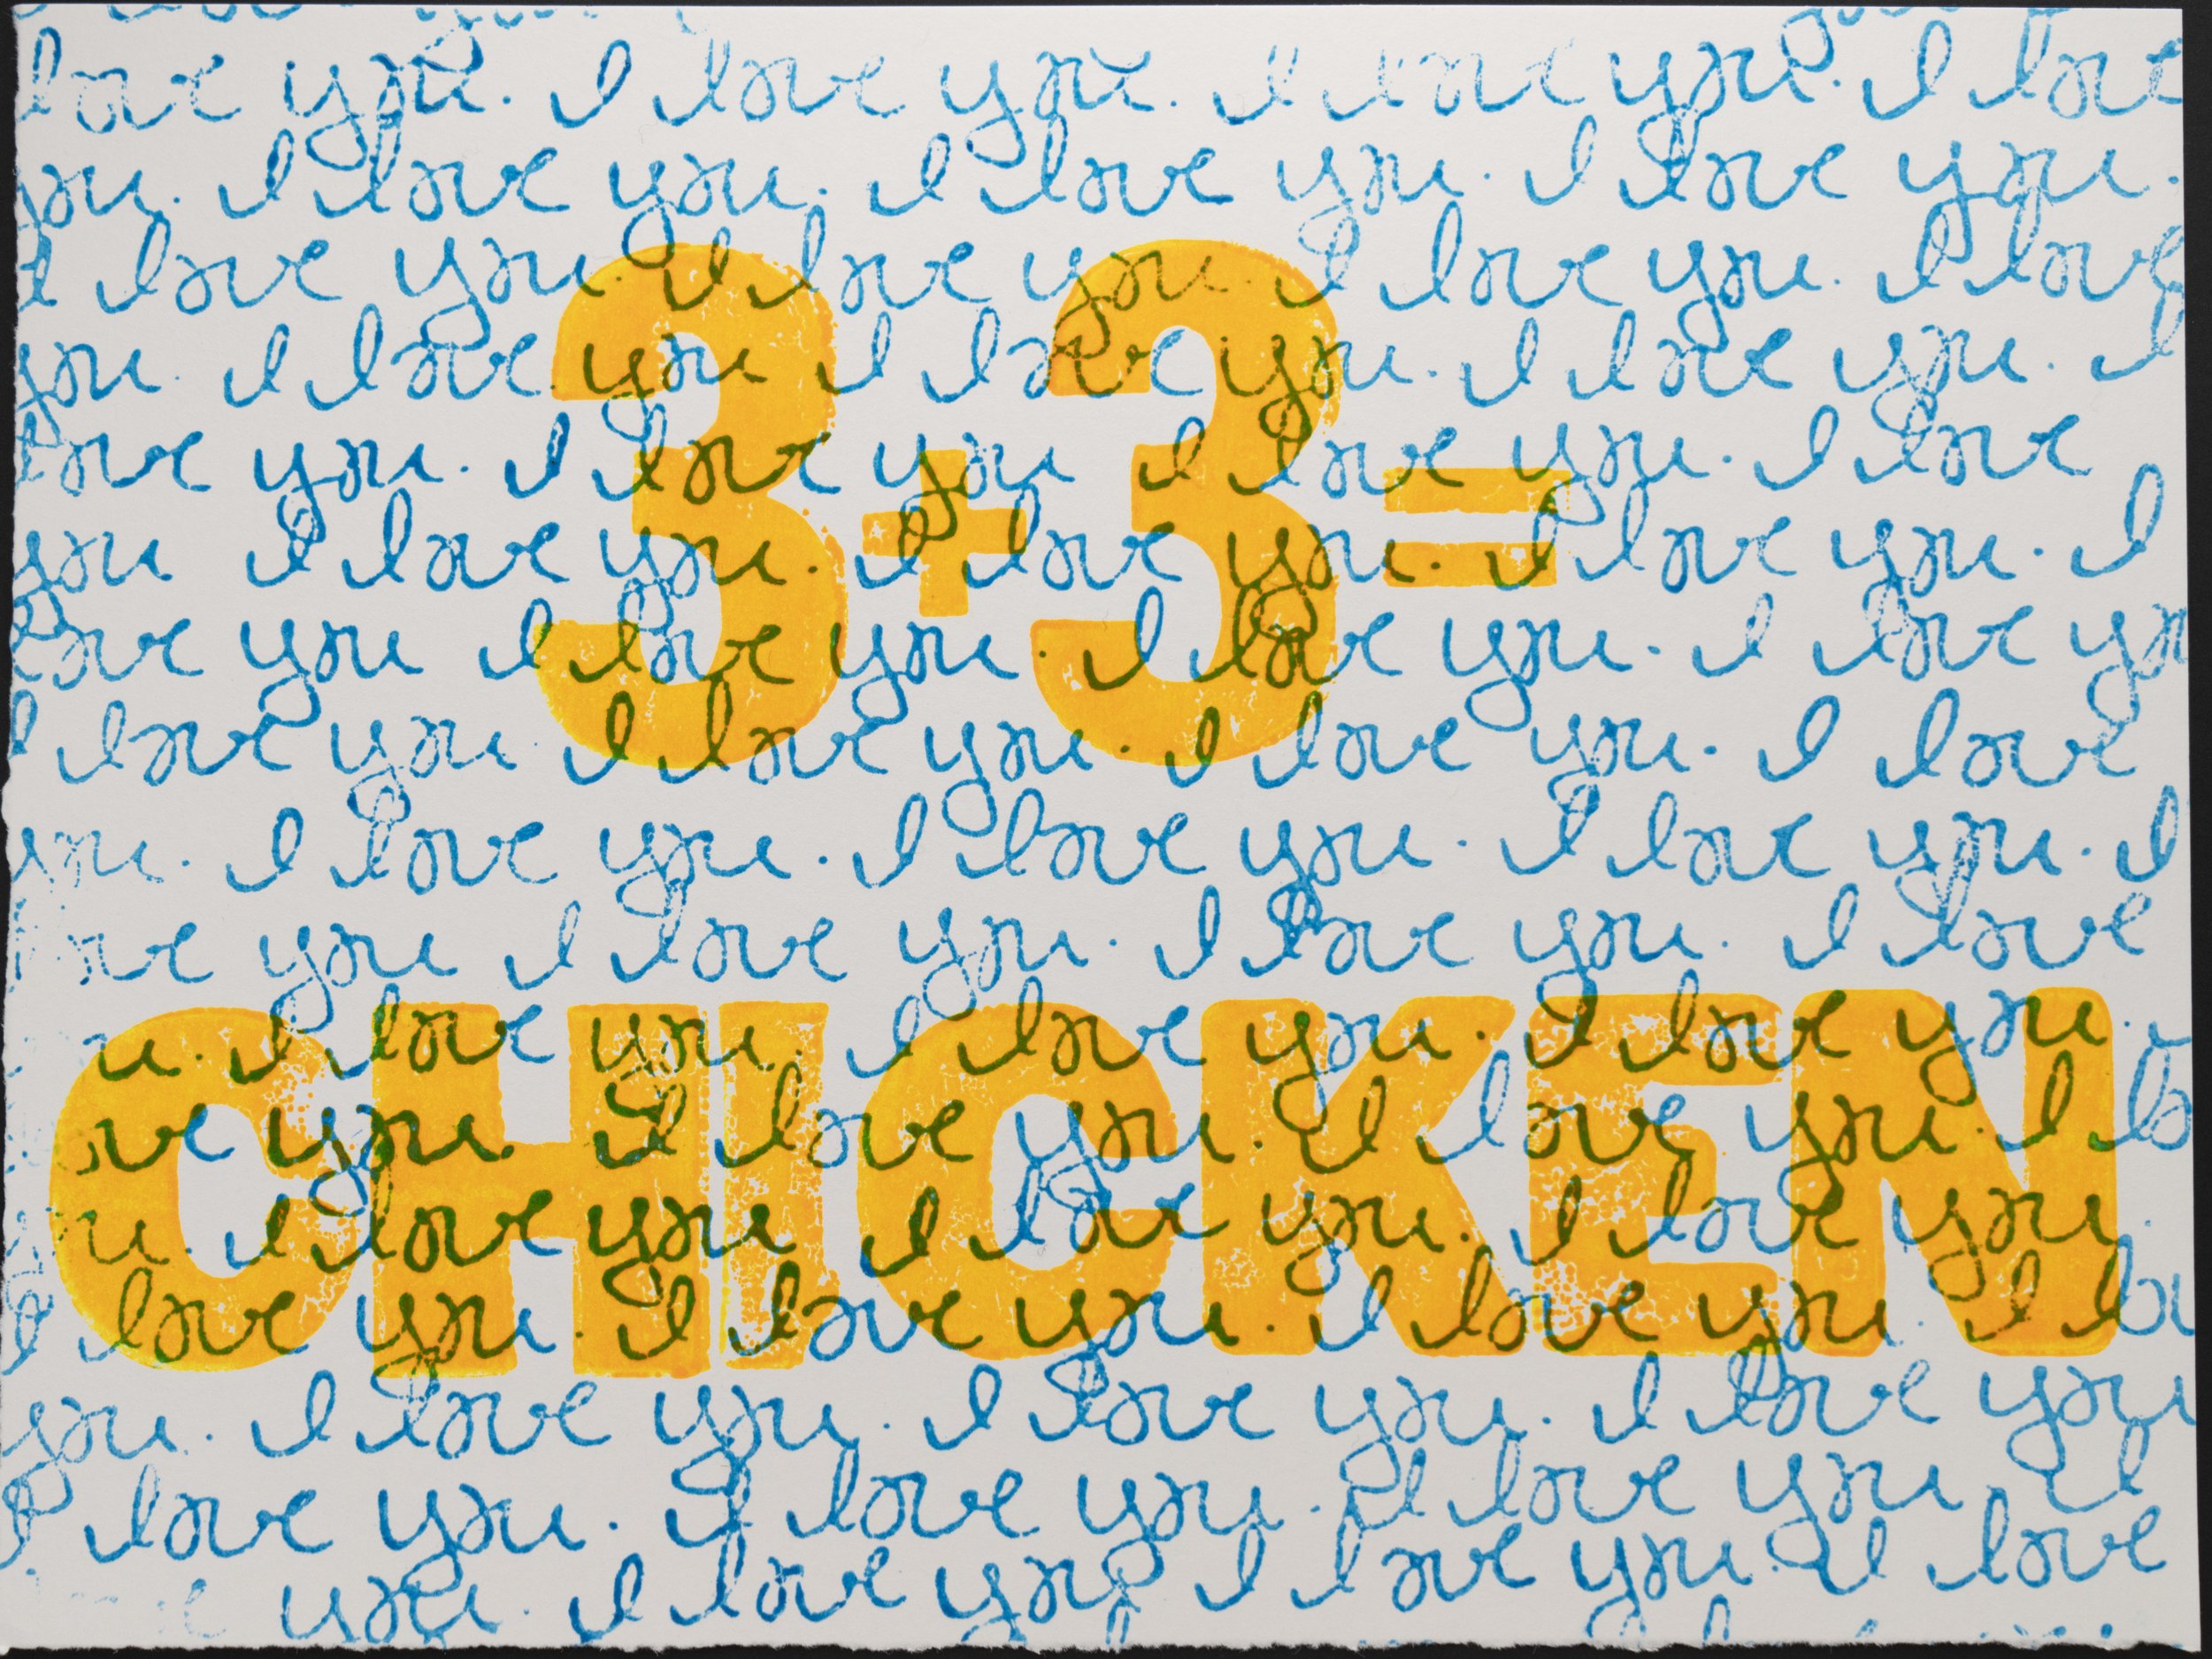 love you. I love you. I love you. I love
you. I love you. I love you. I love you.
I love you. I love you. I love you. I love
you. I love you I love you. I love you. I
love you. I love you I love you. I love
3+3=
you I love you. I love you. I love you. I
love you I love you. I love you. I love yo
I love you I love you. I love you. I love
you. I love you. I love you. I love you. I
ve you I love you. I love you. I love
u. I love you. I love you. I love you.
ve you. I love you. I love you. I lo
CHICKEN
u. I love you I love you. I love you.
I love you. I love you. I love you. I lo
you. I love you. I love you. I love you
I love you. I love you. I love you. I
you. I love you I love you. I love